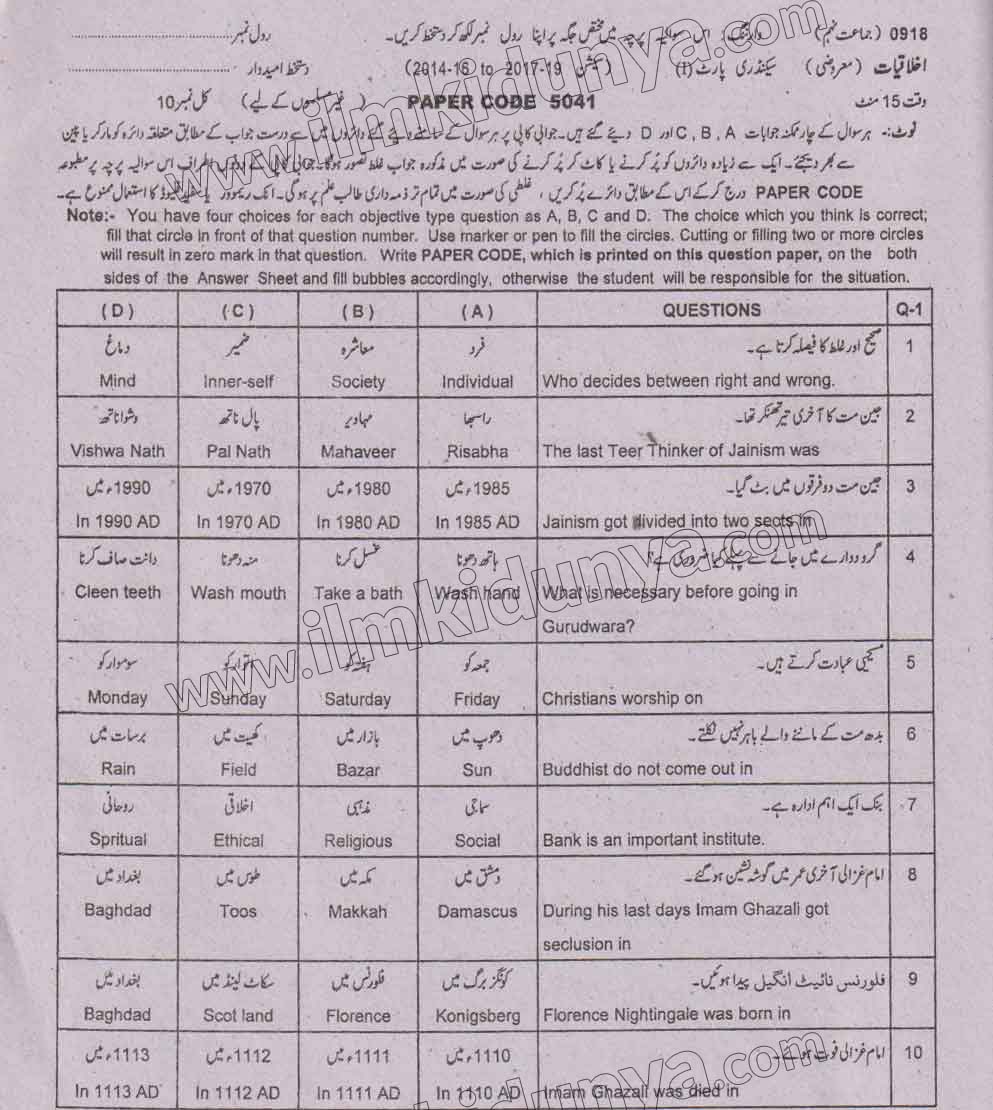 0918 (جماعت نہم) وارننگ: اس سوالیہ پرچہ میں مختص جگہ پر اپنا رول نمبر لکھ کر دستخط کریں۔ رول نمبر
اخلاقیات (معروضی) سیکنڈری پارٹ (I) (سیشن 2014-16 to 2017-19) دستخط امیدوار
وقت 15 منٹ PAPER CODE 5041 (غیر مسلموں کے لیے) کل نمبر 10
نوٹ:- ہر سوال کے چار ممکنہ جوابات C, B, A اور D دیئے گئے ہیں۔ جوابی کاپی پر ہر سوال کے سامنے دیئے گئے دائروں میں سے درست جواب کے مطابق متعلقہ دائرہ کو مارکر یا پین
سے بھر دیجئے۔ ایک سے زیادہ دائروں کو پُر کرنے یا کاٹ کر پُر کرنے کی صورت میں مذکورہ جواب غلط تصور ہوگا۔ جوابی کاپی کے دونوں اطراف اس سوالیہ پرچہ پر مطبوعہ
PAPER CODE درج کر کے اس کے مطابق دائرے پُر کریں، غلطی کی صورت میں تمام تر ذمہ داری طالب علم پر ہوگی۔ انک ریموور یا سفید فلیوڈ کا استعمال ممنوع ہے۔
Note:- You have four choices for each objective type question as A, B, C and D. The choice which you think is correct;
fill that circle in front of that question number. Use marker or pen to fill the circles. Cutting or filling two or more circles
will result in zero mark in that question. Write PAPER CODE, which is printed on this question paper, on the both
sides of the Answer Sheet and fill bubbles accordingly, otherwise the student will be responsible for the situation.
(D) (C) (B) (A) QUESTIONS Q-1
دماغ ضمیر معاشرہ فرد صحیح اور غلط کا فیصلہ کرتا ہے۔ 1
Mind Inner-self Society Individual Who decides between right and wrong.
وشواناتھ پال ناتھ مہاویر راسبھا جین مت کا آخری تیرتھنکر تھا۔ 2
Vishwa Nath Pal Nath Mahaveer Risabha The last Teer Thinker of Jainism was
1990ء میں 1970ء میں 1980ء میں 1985ء میں جین مت دو فرقوں میں بٹ گیا۔ 3
In 1990 AD In 1970 AD In 1980 AD In 1985 AD Jainism got divided into two sects in
دانت صاف کرنا منہ دھونا غسل کرنا ہاتھ دھونا گرودوارے میں جانے سے پہلے کیا ضروری ہے؟ 4
Cleen teeth Wash mouth Take a bath Wash hand What is necessary before going in
Gurudwara?
سوموار کو اتوار کو ہفتہ کو جمعہ کو مسیحی عبادت کرتے ہیں۔ 5
Monday Sunday Saturday Friday Christians worship on
برسات میں کھیت میں بازار میں دھوپ میں بدھ مت کے ماننے والے باہر نہیں نکلتے۔ 6
Rain Field Bazar Sun Buddhist do not come out in
روحانی اخلاقی مذہبی سماجی بنک ایک اہم ادارہ ہے۔ 7
Spritual Ethical Religious Social Bank is an important institute.
بغداد میں طوس میں مکہ میں دمشق میں امام غزالی آخری عمر میں گوشہ نشین ہو گئے۔ 8
Baghdad Toos Makkah Damascus During his last days Imam Ghazali got
seclusion in
بغداد میں سکاٹ لینڈ میں فلورنس میں کونگز برگ میں فلورنس نائیٹ انگیل پیدا ہوئیں۔ 9
Baghdad Scot land Florence Konigsberg Florence Nightingale was born in
1113ء میں 1112ء میں 1111ء میں 1110ء میں امام غزالی فوت ہوئے۔ 10
In 1113 AD In 1112 AD In 1111 AD In 1110 AD Imam Ghazali was died in
www.ilmkidunya.com
www.ilmkidunya.com
www.ilmkidunya.com